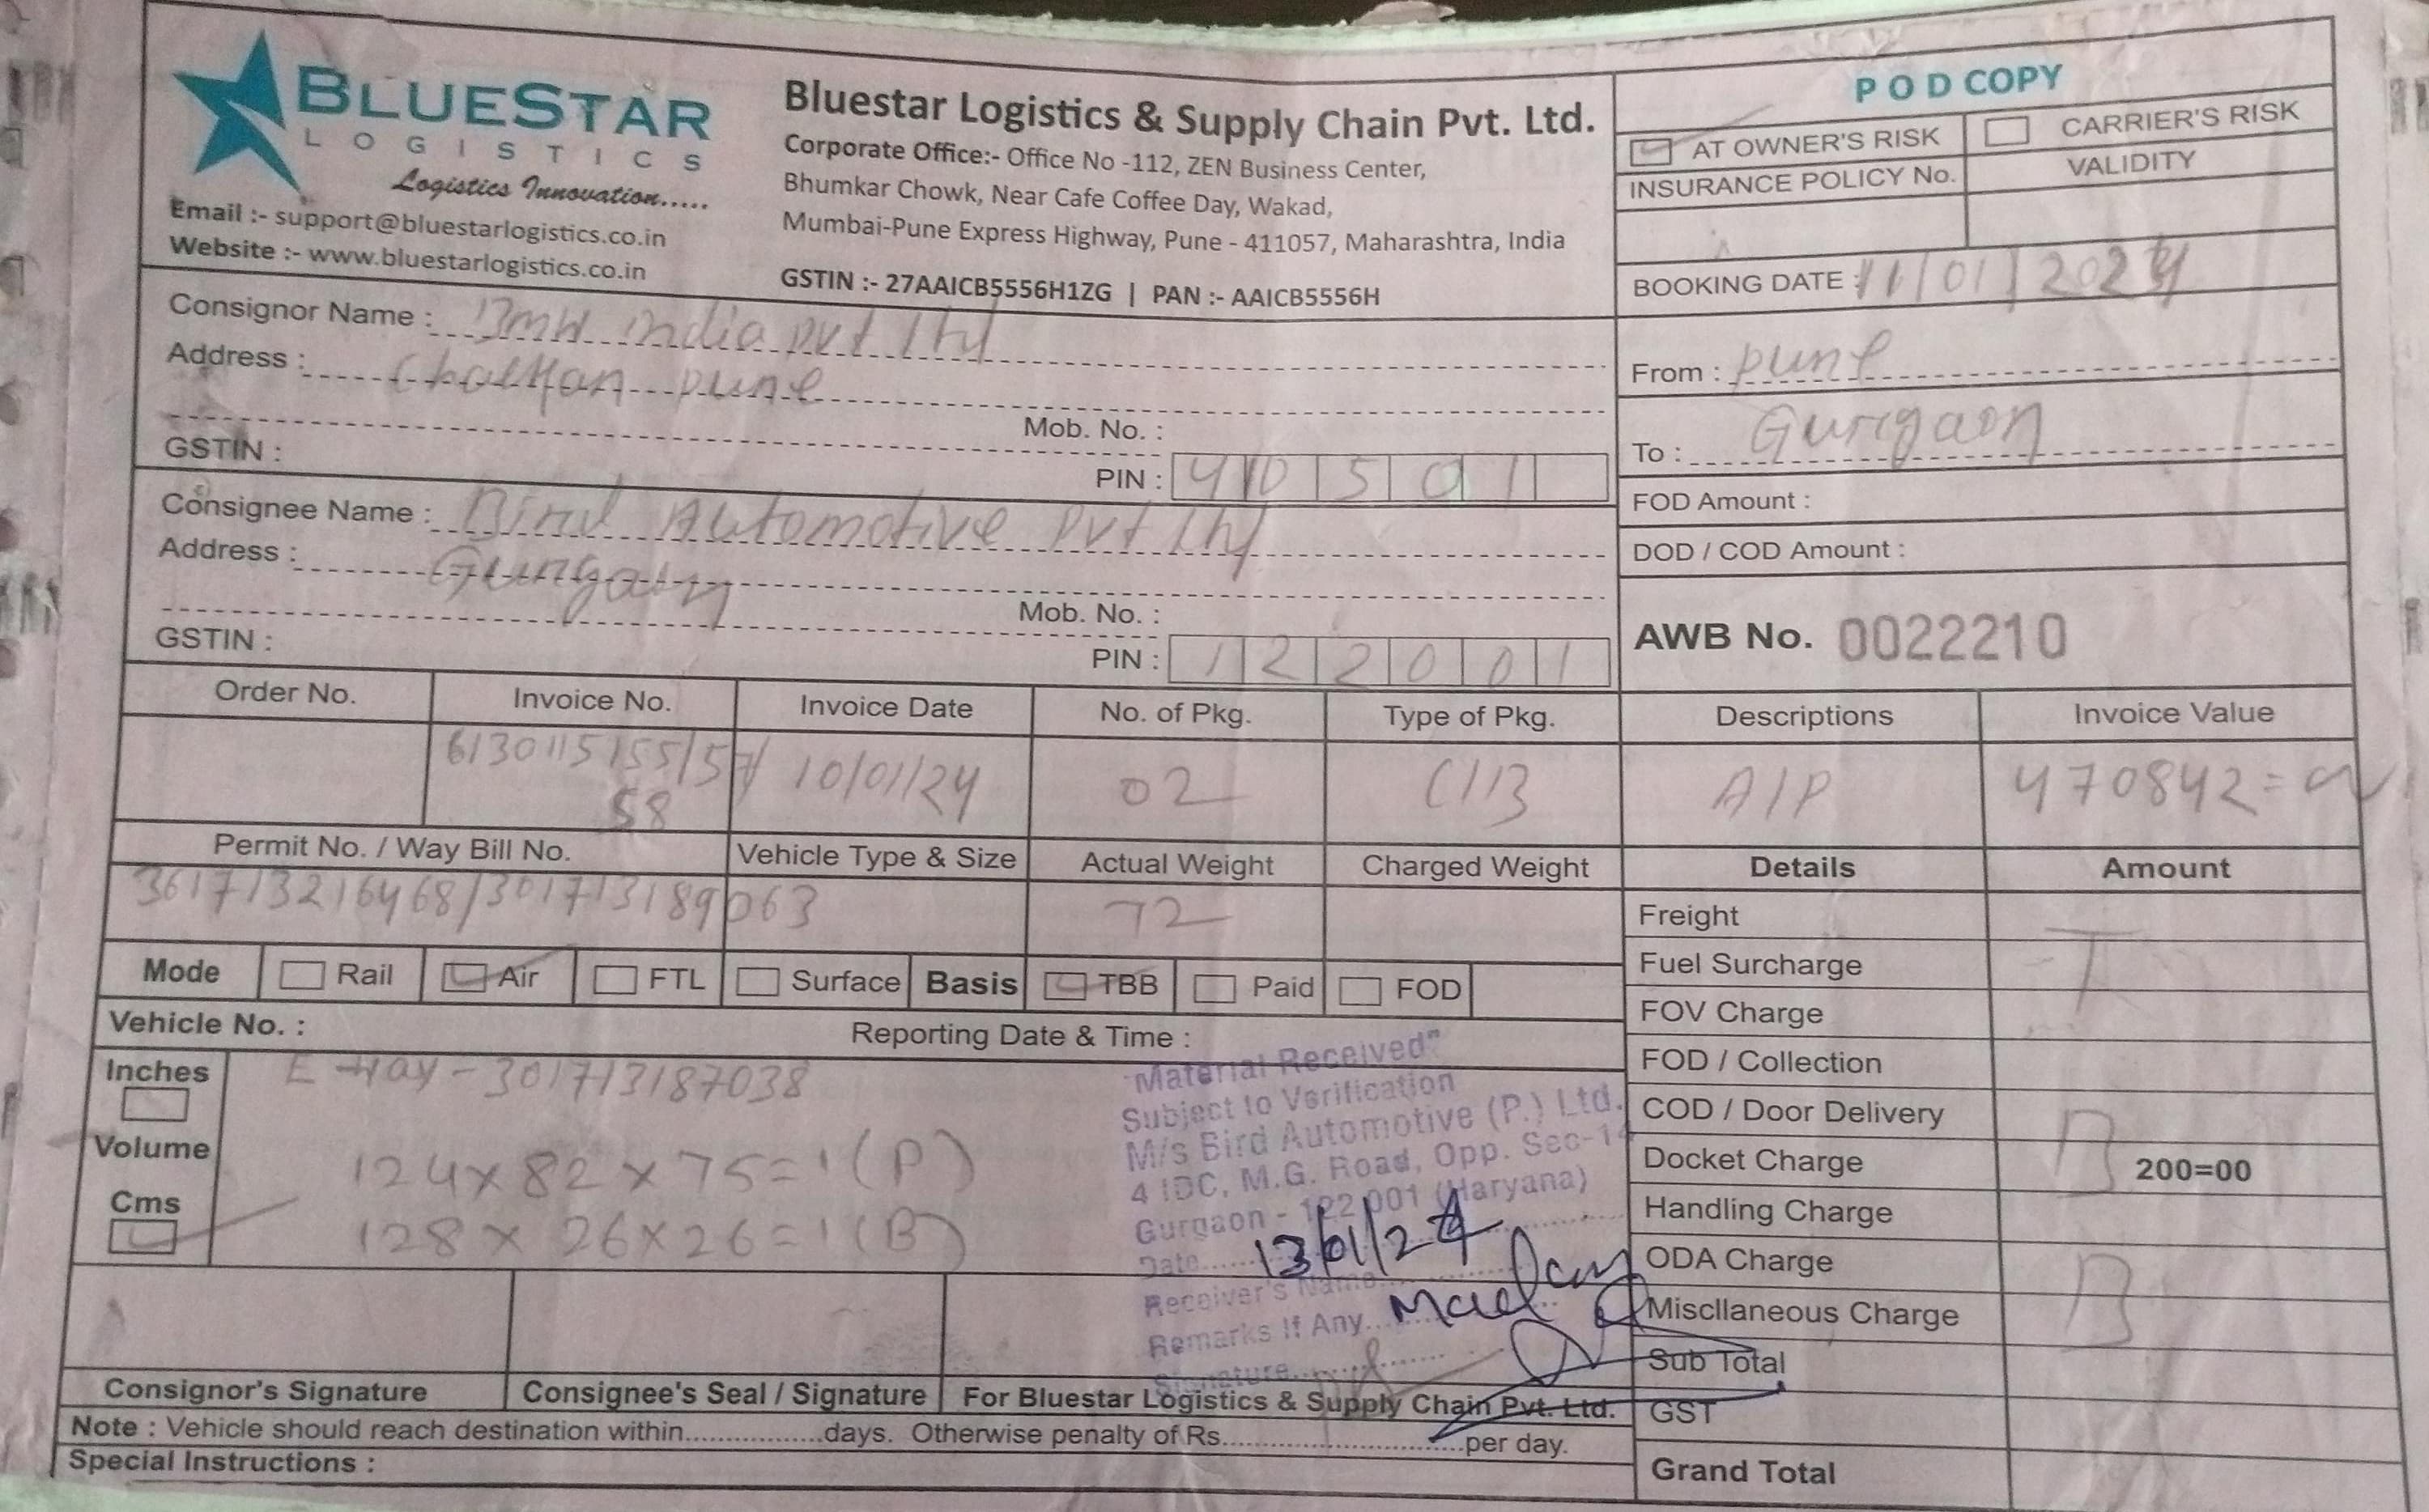 BLUESTAR
LOGISTICS
Logistics Innovation.....
Email :- support@bluestarlogistics.co.in
Website :- www.bluestarlogistics.co.in
Bluestar Logistics & Supply Chain Pvt. Ltd.
Corporate Office:- Office No -112, ZEN Business Center,
Bhumkar Chowk, Near Cafe Coffee Day, Wakad,
Mumbai-Pune Express Highway, Pune - 411057, Maharashtra, India
GSTIN :- 27AAICB5556H1ZG | PAN :- AAICB5556H
POD COPY
AT OWNER'S RISK CARRIER'S RISK
INSURANCE POLICY No. VALIDITY
BOOKING DATE : 11/01/2024
Consignor Name : BMW india pvt ltd
Address : pune
Mob. No. :
GSTIN :
PIN : 410501
From : pune
To : Gurgaon
FOD Amount :
DOD / COD Amount :
Consignee Name : Bird Automotive Pvt ltd
Address : Gurgaon
Mob. No. :
GSTIN :
PIN : 122001
AWB No. 0022210
Order No. Invoice No. Invoice Date No. of Pkg. Type of Pkg. Descriptions Invoice Value
6130115155/57/ 10/01/24 02 C/B A/P 470842=
58
Permit No. / Way Bill No. Vehicle Type & Size Actual Weight Charged Weight Details Amount
361713216468/301713189063 72
Freight
Fuel Surcharge
FOV Charge
FOD / Collection
COD / Door Delivery
Docket Charge 200=00
Handling Charge
ODA Charge
Miscllaneous Charge
Sub Total
GST
Grand Total
T
B
B
Mode Rail Air FTL Surface Basis TBB Paid FOD
Vehicle No. : Reporting Date & Time :
Inches
Volume
Cms
E way - 301713187038
124x82x75=1(P)
128x26x26=1(B)
"Material Received"
Subject to Verification
M/s Bird Automotive (P.) Ltd.
4 IDC, M.G. Road, Opp. Sec-14
Gurgaon - 122 001 (Haryana)
Date...... 13/01/24
Receiver's Name
Remarks If Any...
Signature
Consignor's Signature Consignee's Seal / Signature For Bluestar Logistics & Supply Chain Pvt. Ltd.
Note : Vehicle should reach destination within.................days. Otherwise penalty of Rs..............................per day.
Special Instructions :